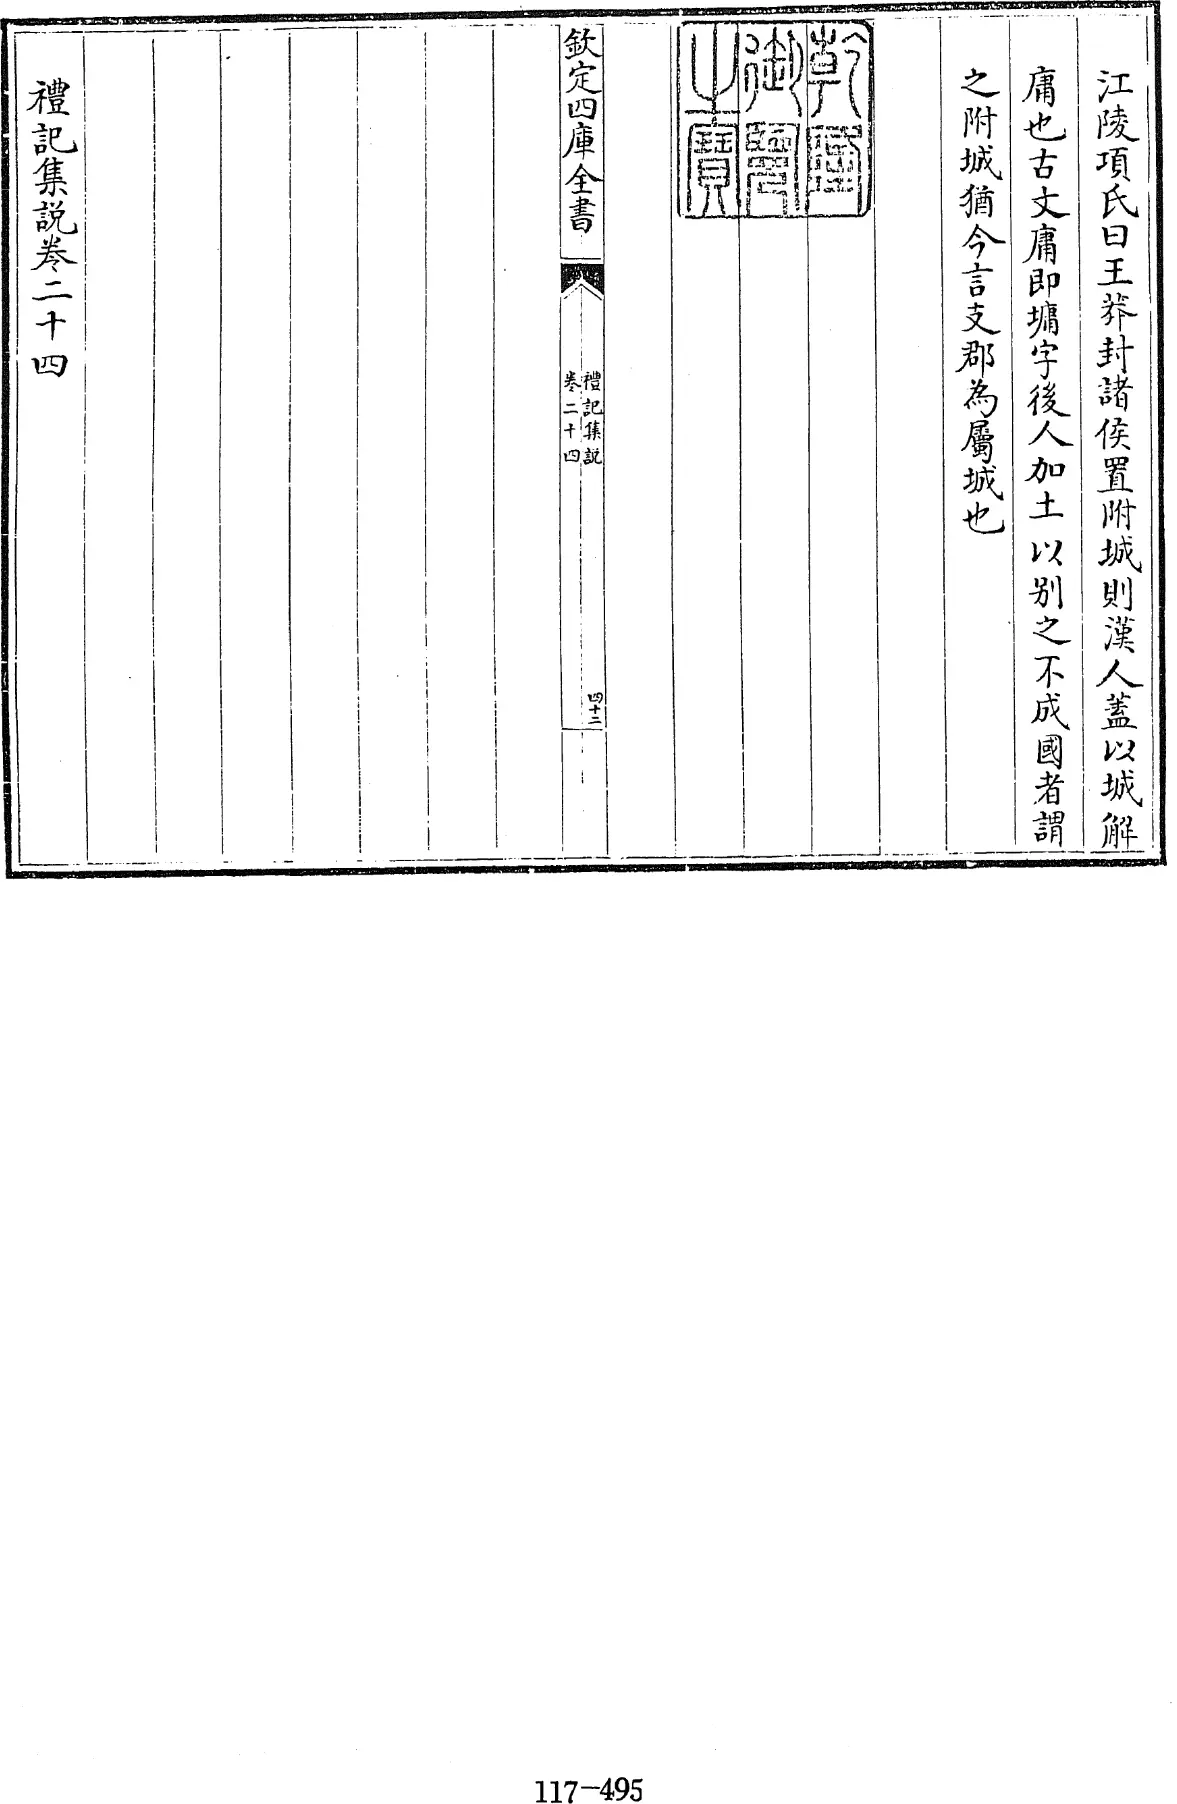 江陵項氏曰王莽封諸侯置附城則漢人蓋以城解
庸也古文庸即墉字後人加土以别之不成國者謂
之附城猶今言支郡為屬城也
乾隆
御覽
之寶
欽定四庫全書
禮記集說
卷二十四
四十二
禮記集說卷二十四
117-495